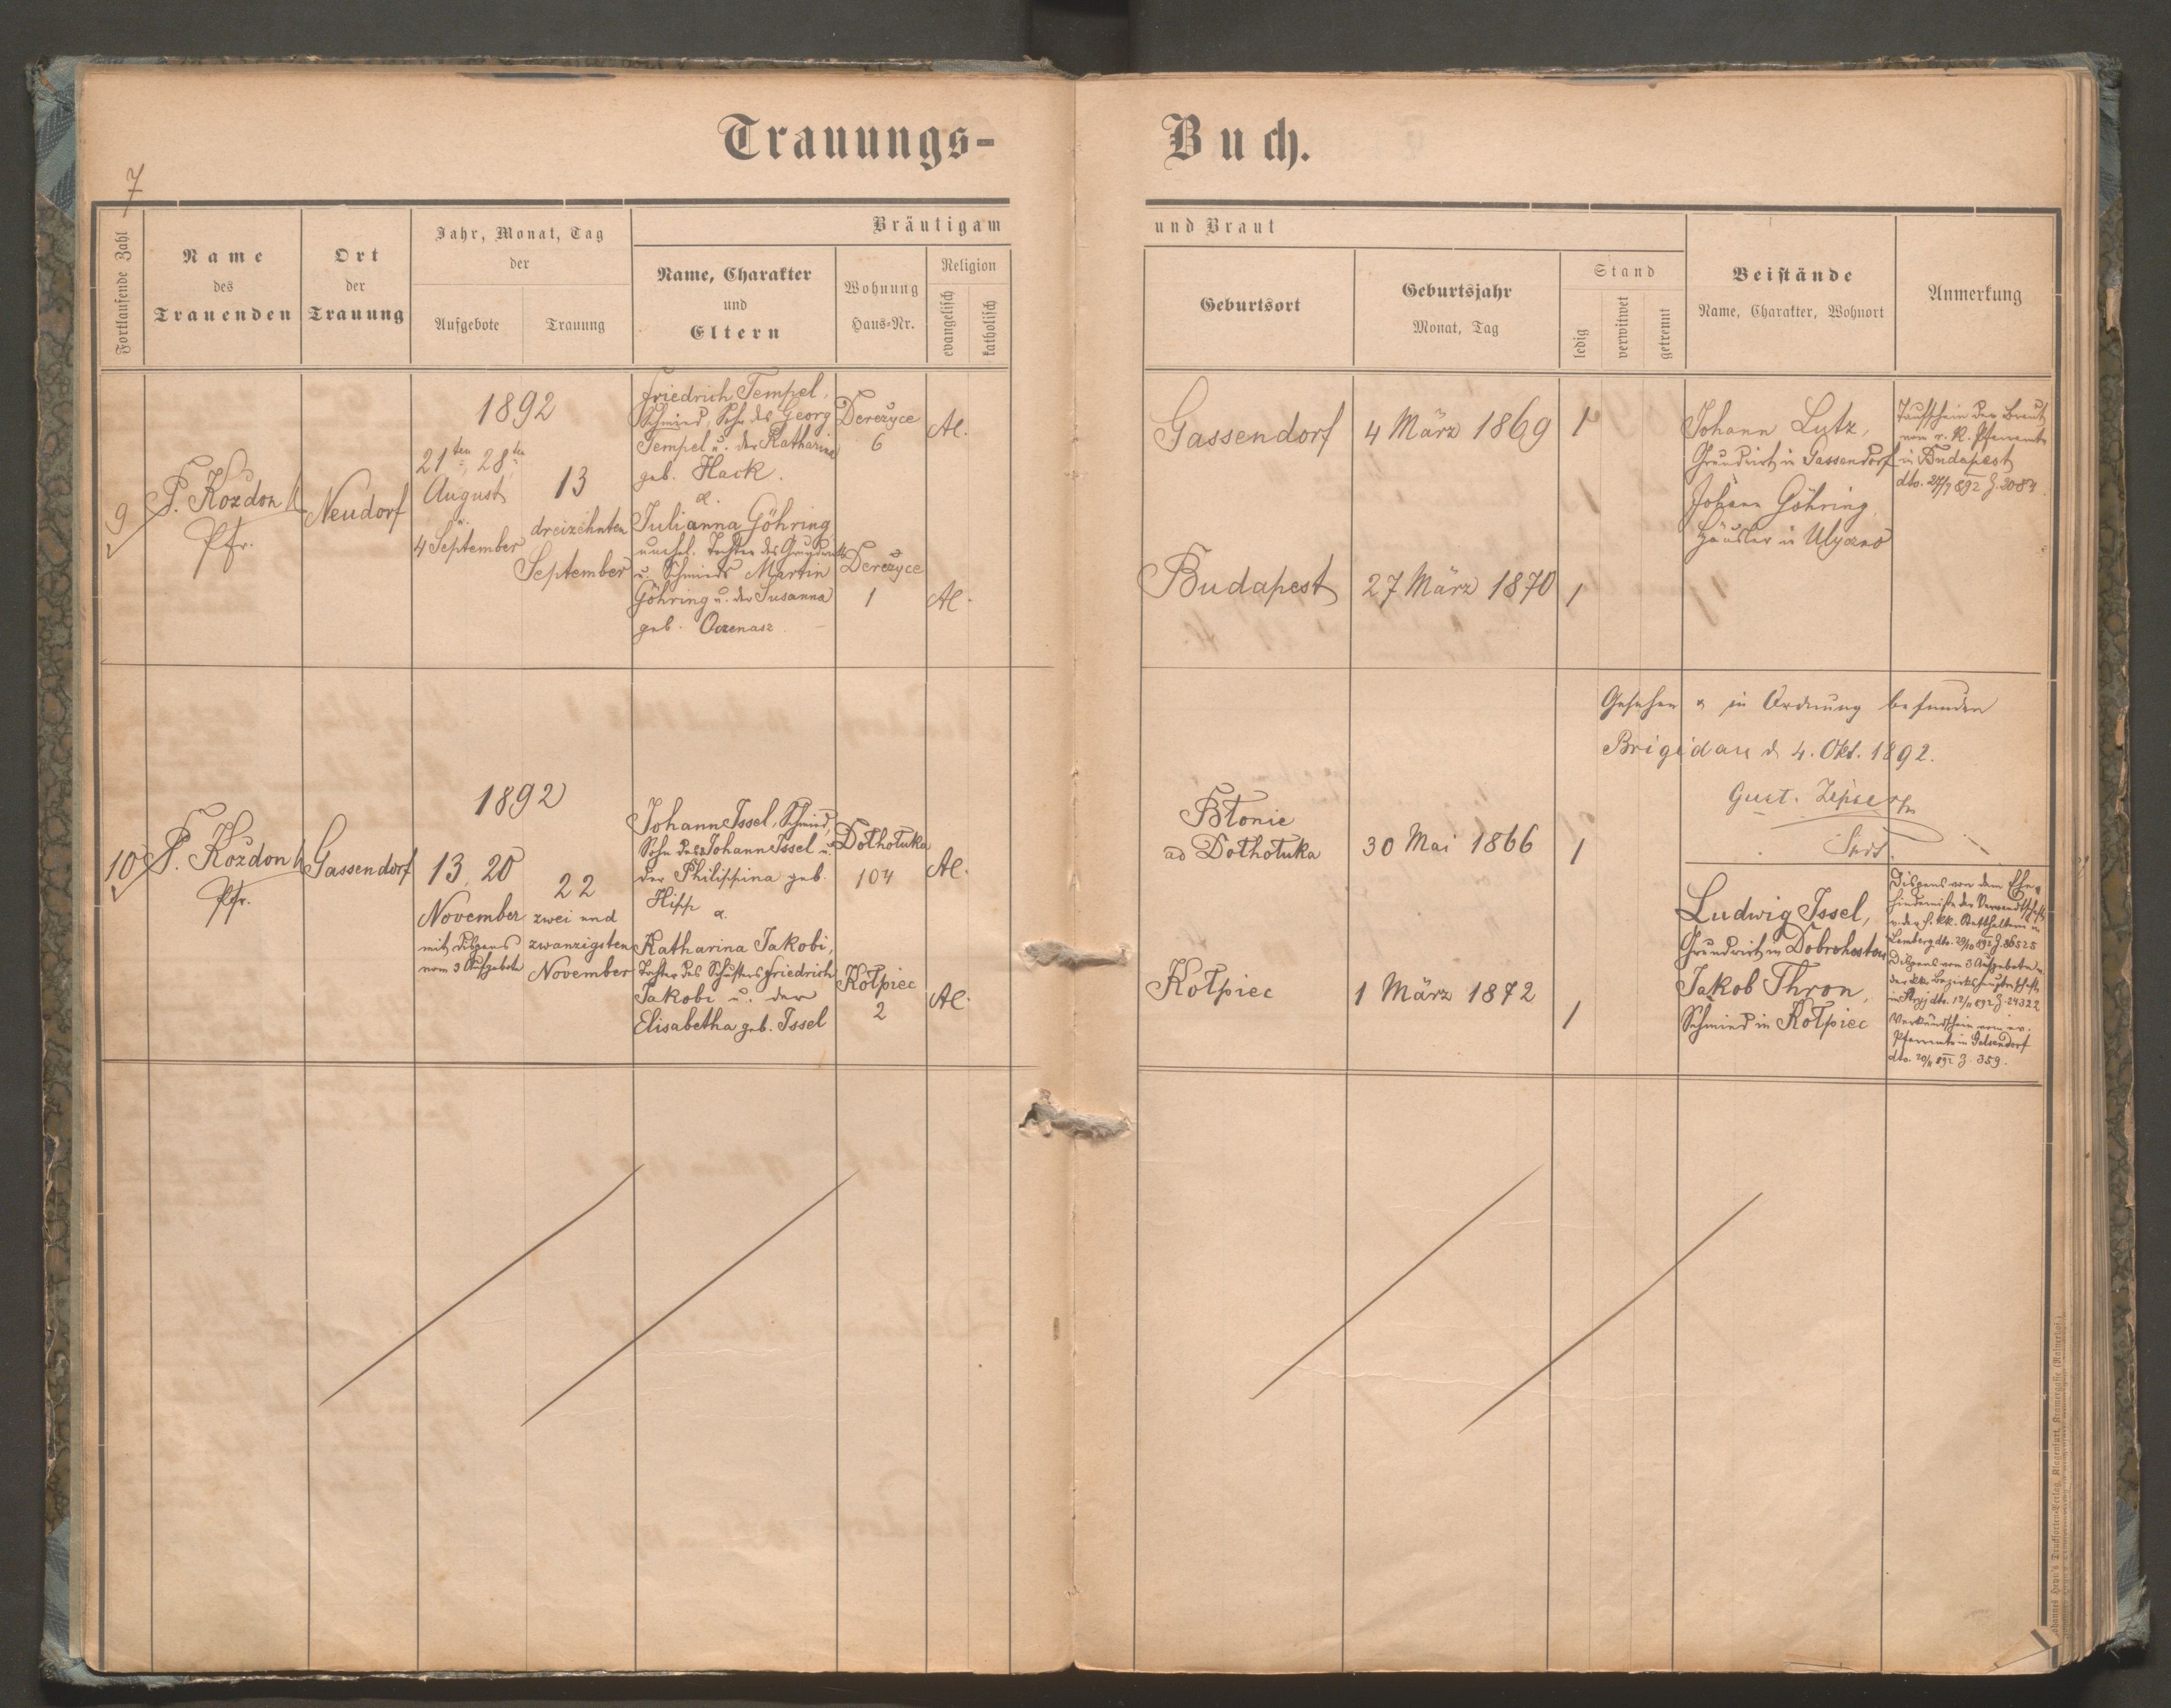 Trauungs-
Buch.
7
Fortlaufende Zahl
Name
des
Trauenden
Ort
der
Trauung
Jahr, Monat, Tag
der
Aufgebote
Trauung
Bräutigam
Name, Charakter
und
Eltern
Wohnung
Haus-Nr.
Religion
evangelisch
katholisch
und Braut
Geburtsort
Geburtsjahr
Monat, Tag
Stand
ledig
verwitwet
getrennt
Beistände
Name, Charakter, Wohnort
Anmerkung
9
P. Kozdon
Pfr.
Neudorf
1892
21ten, 28ten
August
u.
4 September
13
dreizehnten
September
Friedrich Tempel,
Schmied, Sohn des Georg
Tempel u. der Katharina
geb. Hack.
&
Julianna Göhring,
unehel. Tochter des Grundwirts
u. Schmieds Martin
Göhring u. der Susanna
geb.
Derezyce
6
AC.
Derezyce
1
AC.
Gassendorf
4 März 1869
1
Budapest
27 März 1870
1
Johann Lutz,
Grundwirt in Gassendorf
Johann Göhring,
Häusler in
Taufschein der Braut
vom r. K. Pfarramte
in Budapest
dto. 27/7 892 Z. 2084.
Gesehen & in Ordnung befunden
Brigidau d 4. Okt. 1892.
Gust.
Sen.
10
P. Kozdon
Pfr.
Gassendorf
1892
13, 20
November
mit Dispens
vom 3 Aufgebote
22
zwei und
zwanzigsten
November
Johann Issel, Schmied,
Sohn des Johann Issel u.
der Philippina geb.
Hipp
&
Katharina Jakobi,
Tochter des Schusters Friedrich
Jakobi u. der
Elisabetha geb. Issel
Dołhołuka
104
AC.
Kołpiec
2
AC.
Błonie
ad Dołhołuka
30 Mai 1866
1
Kołpiec
1 März 1872
1
Ludwig Issel,
Grundwirt in Dobrohostow
Jakob Thron,
Schmied in Kołpiec
Dispens von dem Ehe-
hindernisse der Verwandtschaft
v. der h. kk. Statthalterei in
Lemberg dto. 20/10 892 Z. 86525
Dispens vom 3 Aufgebote v.
der kk. Bezirkshauptmschaft
in Stryj dto. 12/11 892 Z. 24322
Verkündschein vom ev.
Pfarramte in Gelsendorf
dto. 20/11 892 Z. 359.